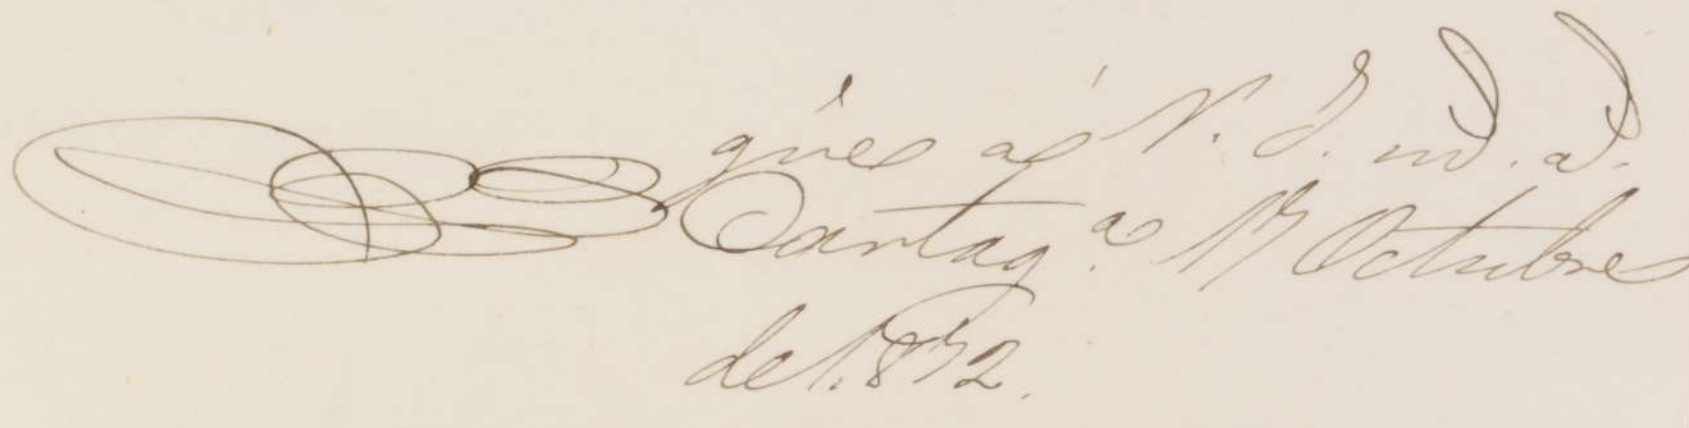 gue á V. S. m. a.
Cartag.a 17 Octubre
de 1.872.